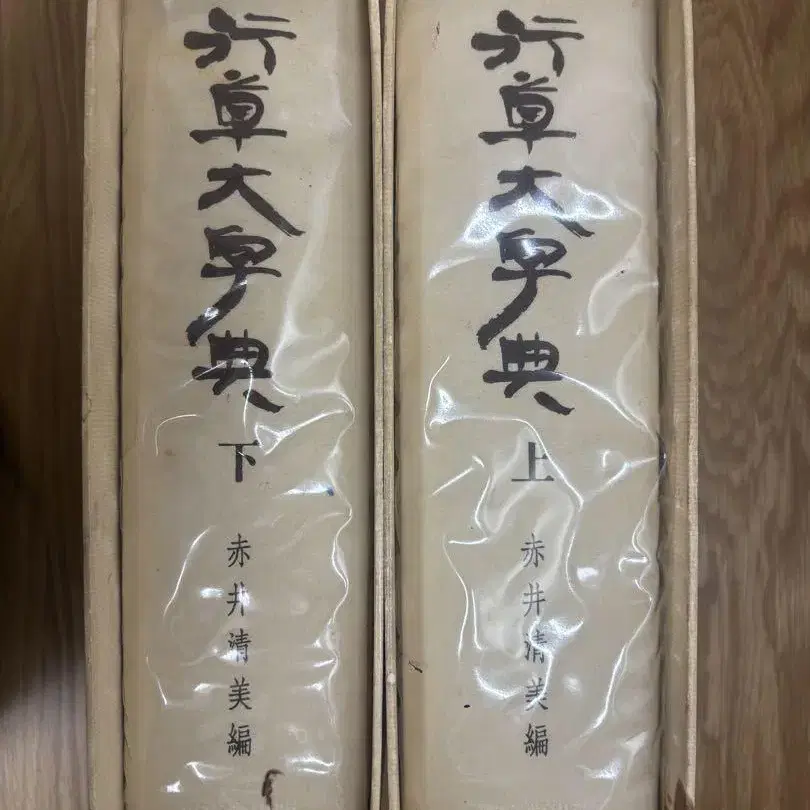 行草大字典
上
赤井清美編
行草大字典
下
赤井清美編